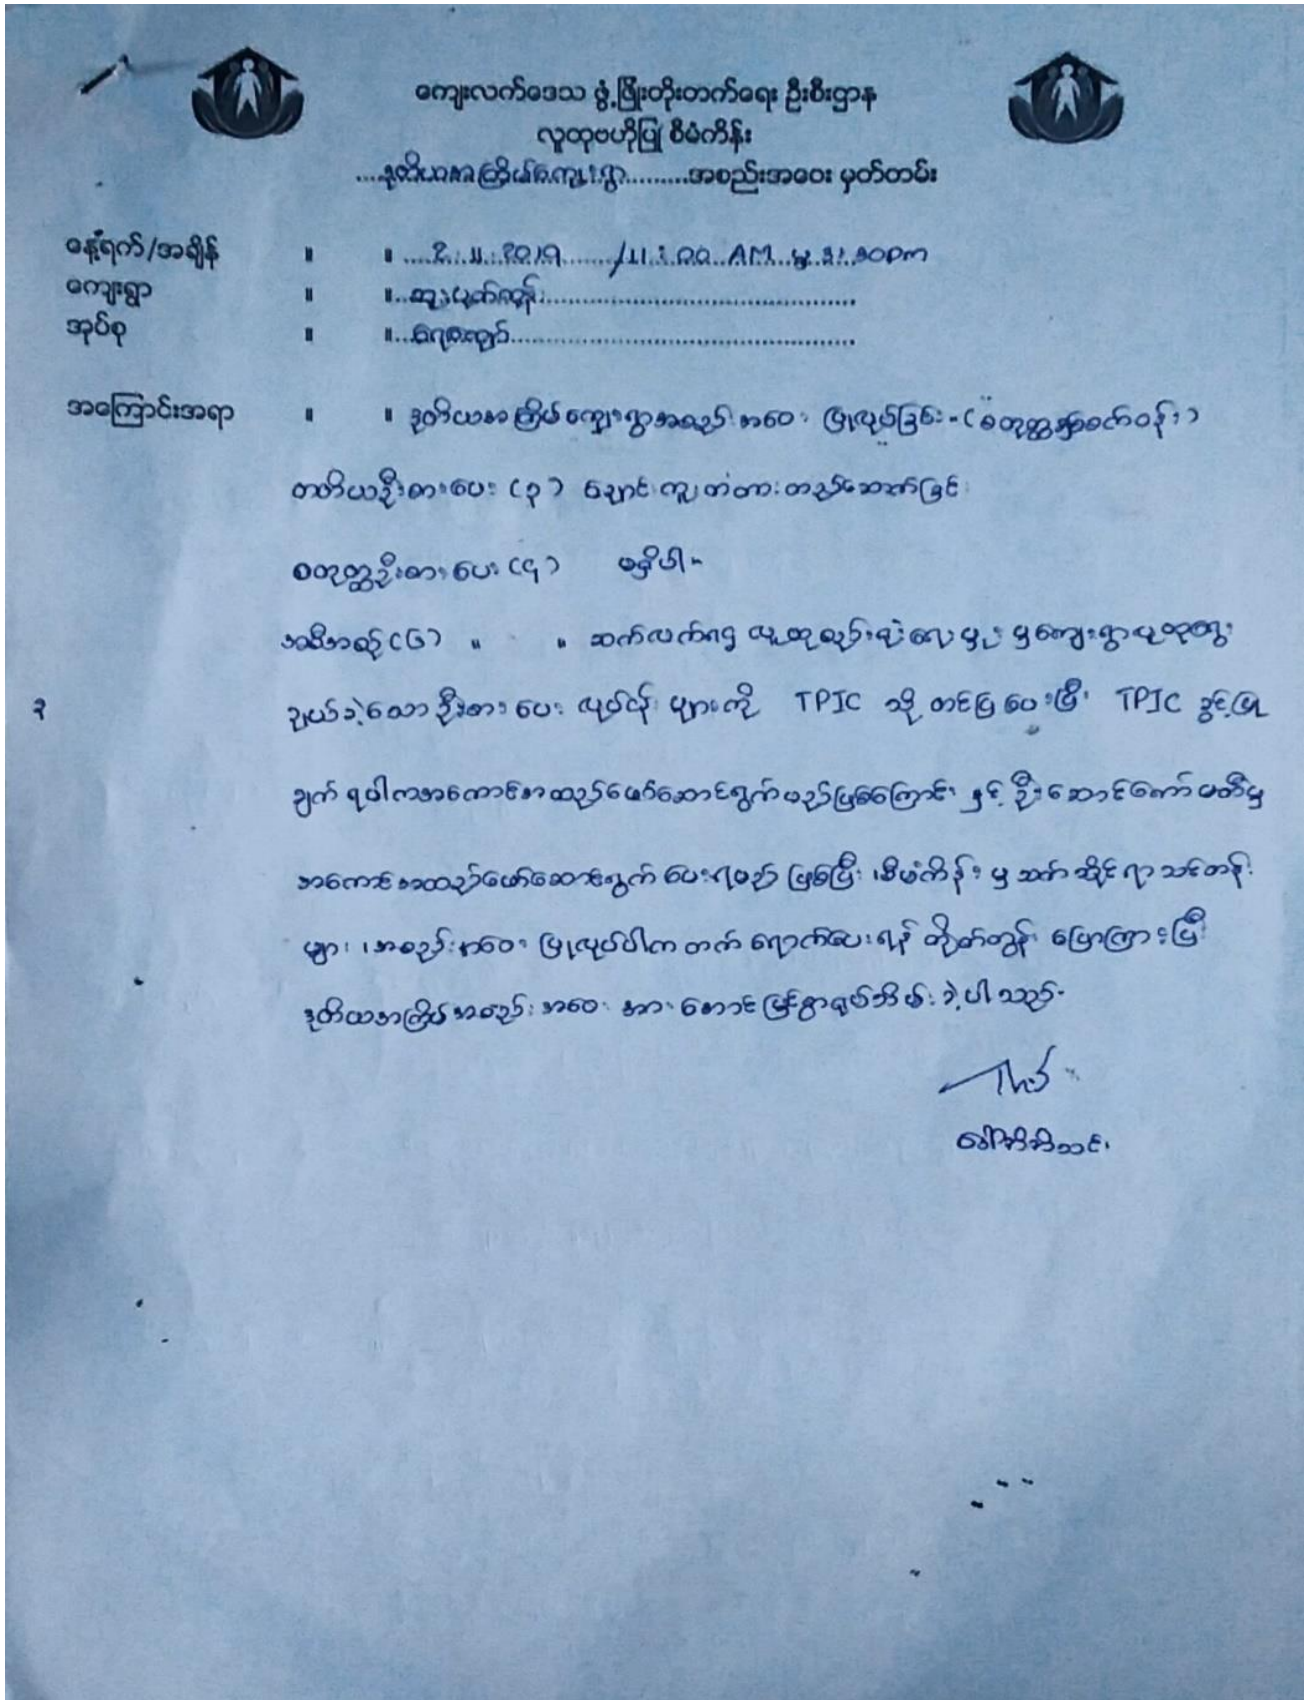 ကျေးလက်ဒေသ ဖွံ့ဖြိုးတိုးတက်ရေး ဦးစီးဌာန
လူထုဗဟိုပြု စီမံကိန်း
....ဒုတိယအကြိမ်ကျေးရွာ.........အစည်းအဝေး မှတ်တမ်း
နေ့ရက်/အချိန် ။ ။ ....2.11.2019......./11:00 AM မှ 3:30pm
ကျေးရွာ ။ ။
အုပ်စု ။ ။...ရေစကျွဲ
အကြောင်းအရာ ။ ။ ဒုတိယအကြိမ်ကျေးရွာအစည်းအဝေး ပြုလုပ်ခြင်း-(စတုတ္ထနှစ်စက်ဝန်း)
တတိယဦးစားပေး (၃) ချောင်းကူးတံတားတည်ဆောက်ခြင်း
စတုတ္ထဦးစားပေး (၄) မရှိပါ-
အစီအစဉ် (၆) ။ ။ ဆက်လက်၍ လူထုစည်းရုံးရေးမှူးမှ ကျေးရွာလူထုရွေး
၃ ချယ်ခဲ့သောဦးစားပေး လုပ်ငန်းများကို TPIC သို့ တင်ပြပေးပြီး TPIC ခွင့်ပြု
ချက် ရပါကအကောင်အထည်ဖော်ဆောင်ရွက်မည်ဖြစ်ကြောင်း နှင့် ဦးဆောင်ကော်မတီမှ
အကောင်အထည်ဖော်ဆောင်ရွက်ပေးရမည် ဖြစ်ပြီး ၊စီမံကိန်းမှ သက်ဆိုင်ရာ သင်တန်း
များ ၊အစည်းအဝေး ပြုလုပ်ပါက တက်ရောက်ပေးရန် တိုက်တွန်း ပြောကြားပြီး
ဒုတိယအကြိမ်အစည်းအဝေး အား အောင်မြင်စွာရုပ်သိမ်းခဲ့ပါသည်-